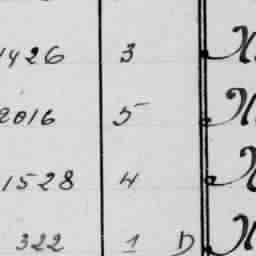 1426 3 Х
2016 5 Х
1528 4 Х
322 1 D Х